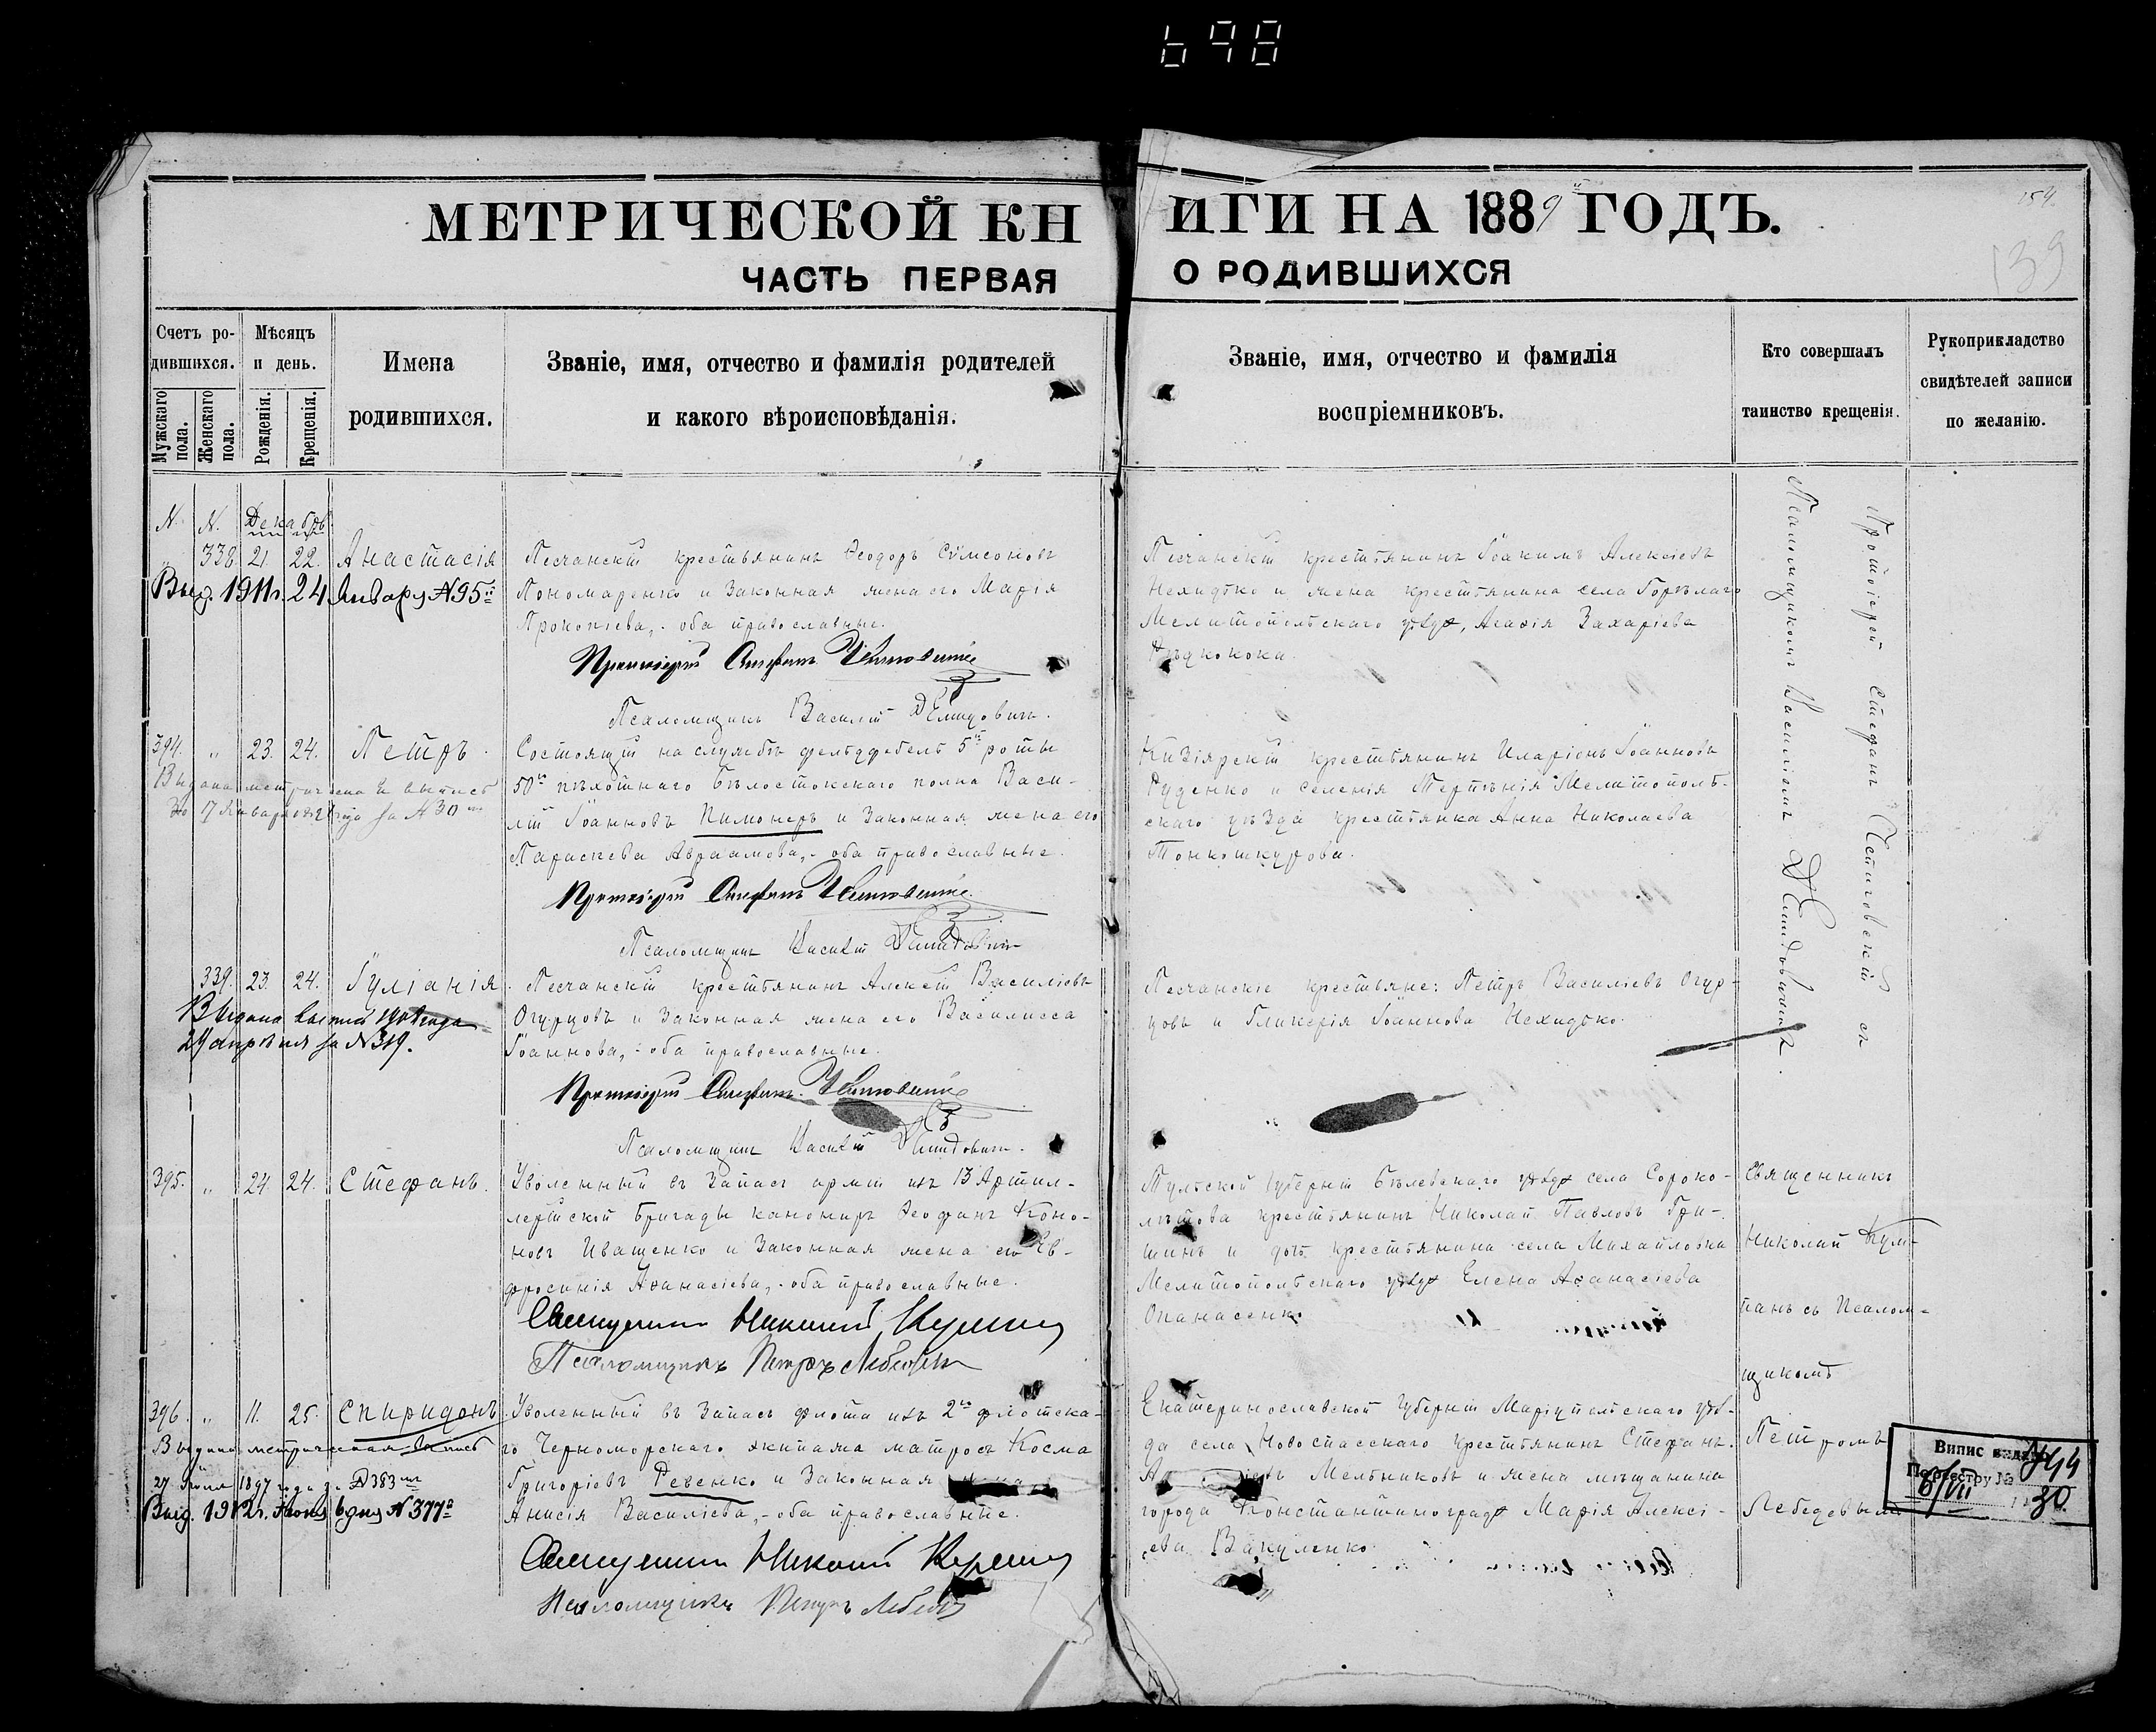 698
МЕТРИЧЕСКОЙ КНИГИ НА 1889 ГОДЪ.
154.
139
ЧАСТЬ ПЕРВАЯ О РОДИВШИХСЯ
Счетъ ро-
дившихся.
Мужскаго пола.
Женскаго пола.
Мѣсяцъ
и день.
Рожденія.
Крещенія.
Имена
родившихся.
Званіе, имя, отчество и фамилія родителей
и какого вѣроисповѣданія.
Званіе, имя, отчество и фамилія
воспріемниковъ.
Кто совершалъ
таинство крещенія.
Рукоприкладство
свидѣтелей записи
по желанію.
N. N. Декабрь
338. 21. 22. Анастасія
Выд. 1911 г. 24 Январу N 95
Песчанскій крестьянинъ Ѳеодоръ Сѵмеоновъ
Пономаренко и законная жена его Марія
Прокопіева, - оба православные.
Протоіерей Стефанъ
Псаломщикъ Василій Демидовичъ.
Песчанскій крестьянинъ Іоакимъ Алексіевъ
Нехидько и жена крестьянина села Горѣлаго
Мелитопольскаго уѣзда, Агаѳія Захаріева
Протоіерей Стефанъ съ
Псаломщикомъ Василіемъ Демидовичемъ.
394. " 23. 24. Петръ.
Выдана метрическа выпись
17 Января за N 30
Состоящій на службѣ фельдфебель 5й роты
50го пѣхотнаго Бѣлостокскаго полка Васи-
лій Іоанновъ Пимонеръ и законная жена его
Параскева Авраамова, - оба православные.
Протоіерей Стефанъ
Псаломщикъ Василій Демидовичъ
Кизіярскій крестьянинъ Иларіонъ Іоанновъ
Руденко и селенія Терпѣнія Мелитополь-
скаго уѣзда крестьянка Анна Николаева
Тонкошкурова.
339. 23. 24. Іуліанія.
Выдана выпись 1908 года
24 апрѣля за N 319.
Песчанскій крестьянинъ Алексій Василіевъ
Огурцовъ и законная жена его Василисса
Іоаннова, - оба православные.
Протоіерей Стефанъ
Псаломщикъ Василій Демидовичъ.
Песчанскіе крестьяне: Петръ Василіевъ Огур-
цовъ и Гликерія Іоаннова Нехидько.
395. " 24. 24. Стефанъ.
Уволенный въ запасъ арміи изъ 13 Артил-
лерійской бригады канониръ Ѳеофанъ Коно-
новъ Иващенко и законная жена его Ев-
фросинія Аѳанасіева, - оба православные.
Священникъ Николай
Псаломщикъ Петръ Лебедевъ
Тульской губерніи Бѣлевскаго уѣзда села Сороко-
крестьянинъ Николай Павловъ Гри-
шинъ и дочь крестьянина села Михайловка
Мелитопольскаго уѣзда Елена Аѳанасіева
Опанасенко
Священникъ
Николай
съ Псалом-
щикомъ
Петромъ
Лебедевымъ
396. " 11. 25. Спиридонъ.
Выдана метрическая выпись
27 Іюня 1897 года за N 383
Выд. 1912 г. Іюня 6 дня N 377
Уволенный въ запасъ флота изъ 2го флотска-
го Черноморскаго экипажа матросъ Косма
Григоріевъ Ревенко и законная жена
Анисія Василіева, - оба православные.
Священникъ Николай
Псаломщикъ Петръ Лебедевъ
Екатеринославской губерніи Маріупольскаго уѣз-
да села Новоспасскаго крестьянинъ Стефанъ
Мельниковъ и жена мѣщанина
города Константинограда Марія Алексі-
ева Вакуленко
Випис видано
По реєстру № 494
8/VII 1930